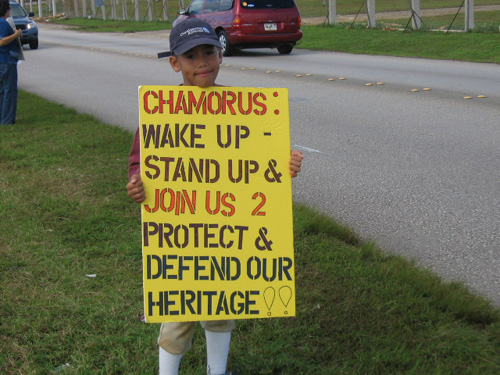 CHAMORUS:
WAKE UP -
STAND UP &
JOIN US 2
PROTECT &
DEFEND OUR
HERITAGE!!